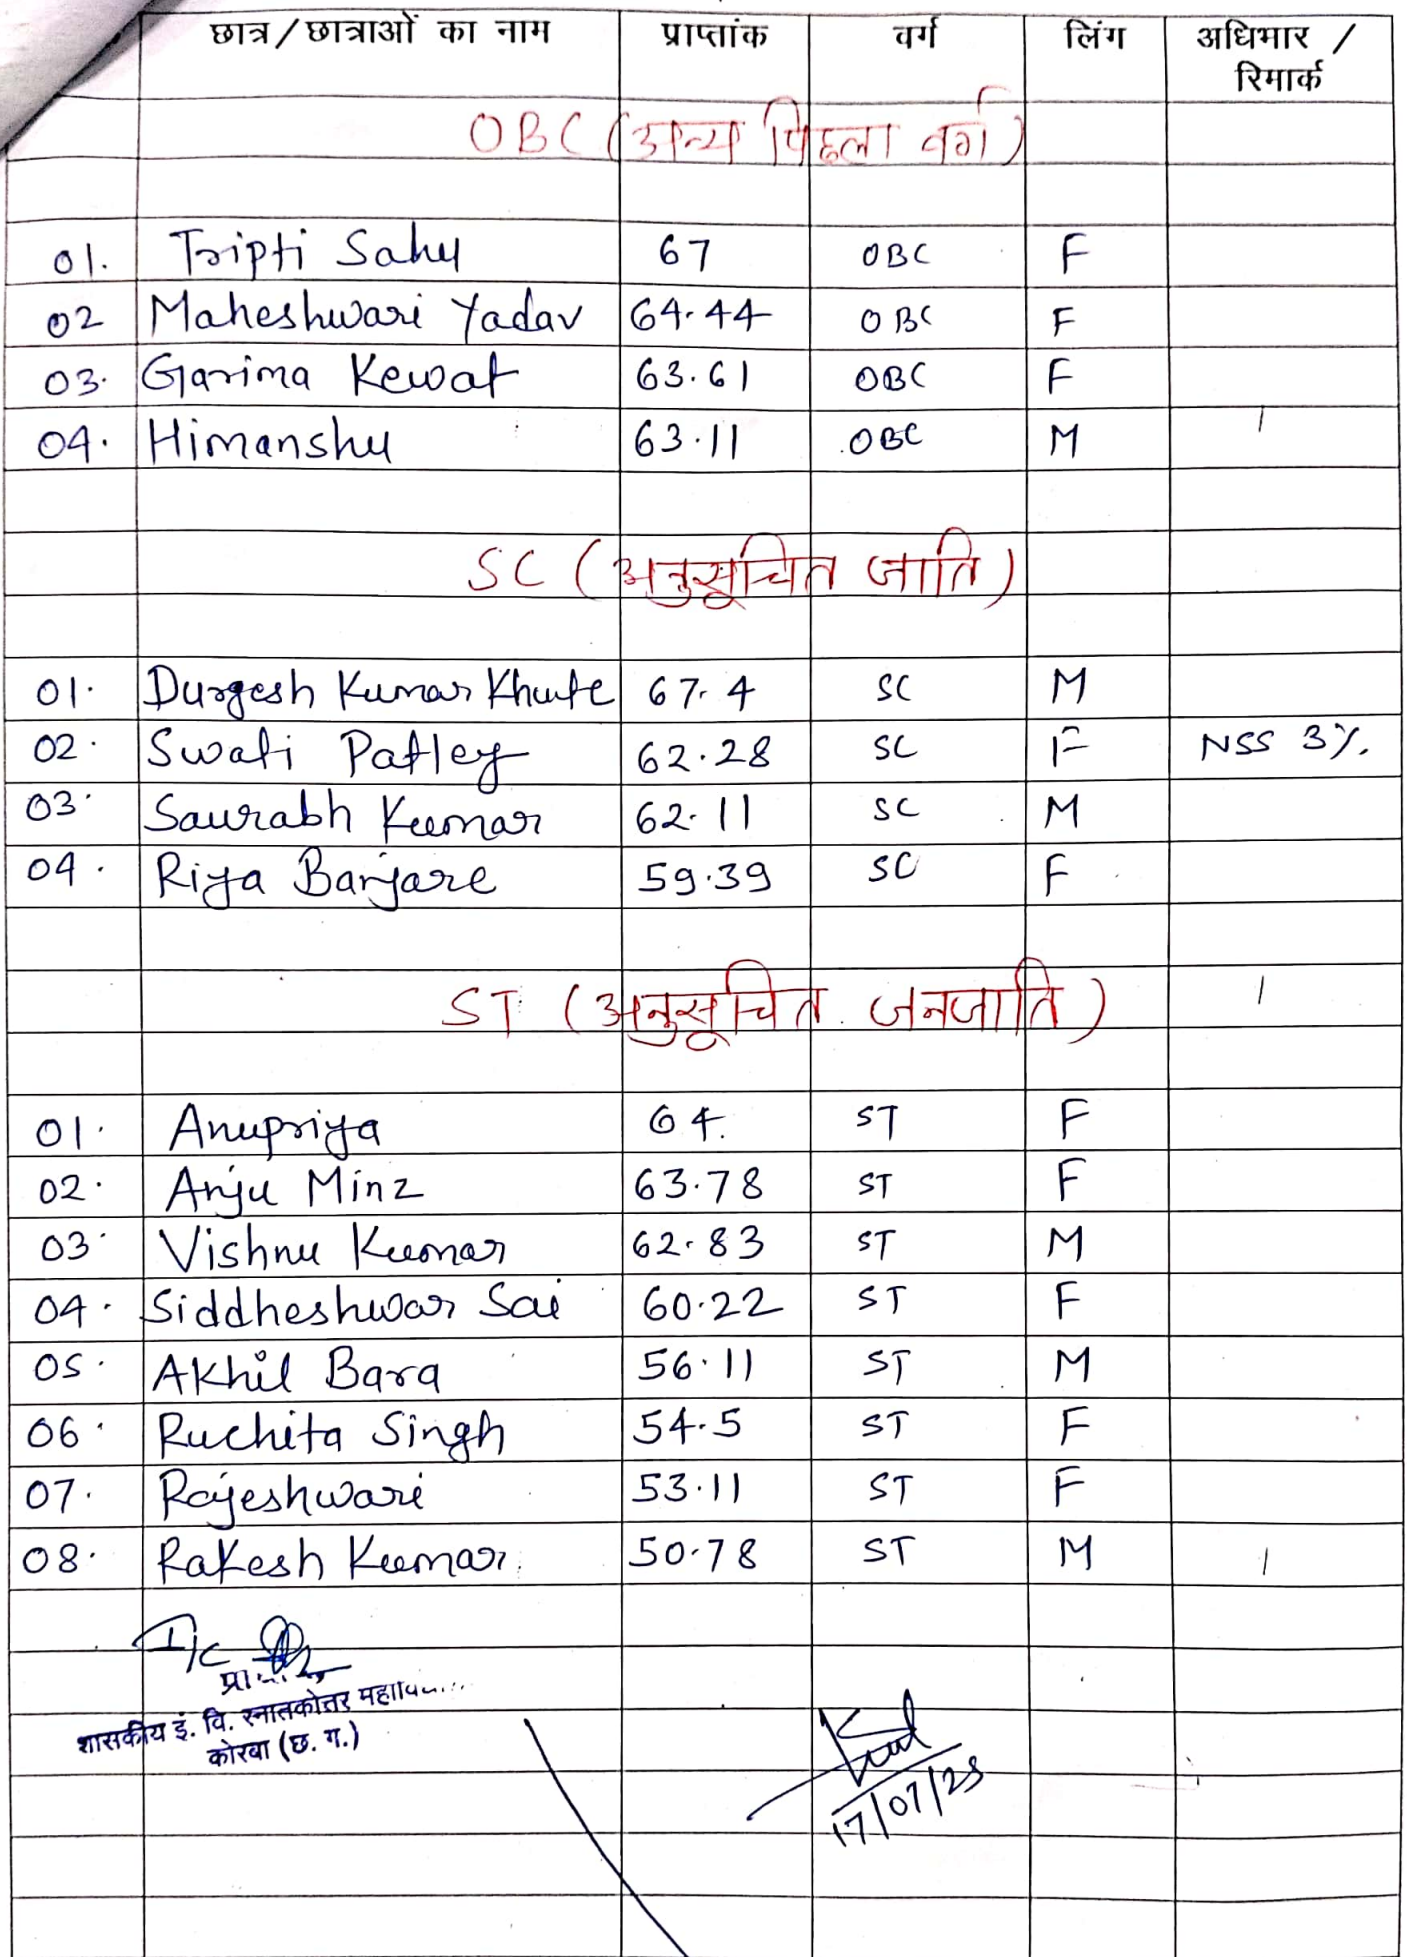 छात्र/छात्राओं का नाम प्राप्तांक वर्ग लिंग अधिभार / रिमार्क
OBC (अन्य पिछला वर्ग)
01. Tripti Sahu 67 OBC F
02 Maheshwari Yadav 64.44 OBC F
03. Garima Kewat 63.61 OBC F
04. Himanshu 63.11 OBC M
SC (अनुसूचित जाति)
01. Durgesh Kumar Khute 67.4 SC M
02. Swati Patley 62.28 SC F NSS 3%.
03. Saurabh Kumar 62.11 SC M
04. Riya Banjare 59.39 SC F
ST (अनुसूचित जनजाति)
01. Anupriya 64. ST F
02. Anju Minz 63.78 ST F
03. Vishnu Kumar 62.83 ST M
04. Siddheshwar Sai 60.22 ST F
05. Akhil Bara 56.11 ST M
06. Ruchita Singh 54.5 ST F
07. Rajeshwari 53.11 ST F
08. Rakesh Kumar 50.78 ST M
I/c
शासकीय इं. वि. स्नातकोत्तर
कोरबा (छ. ग.)
17/07/25